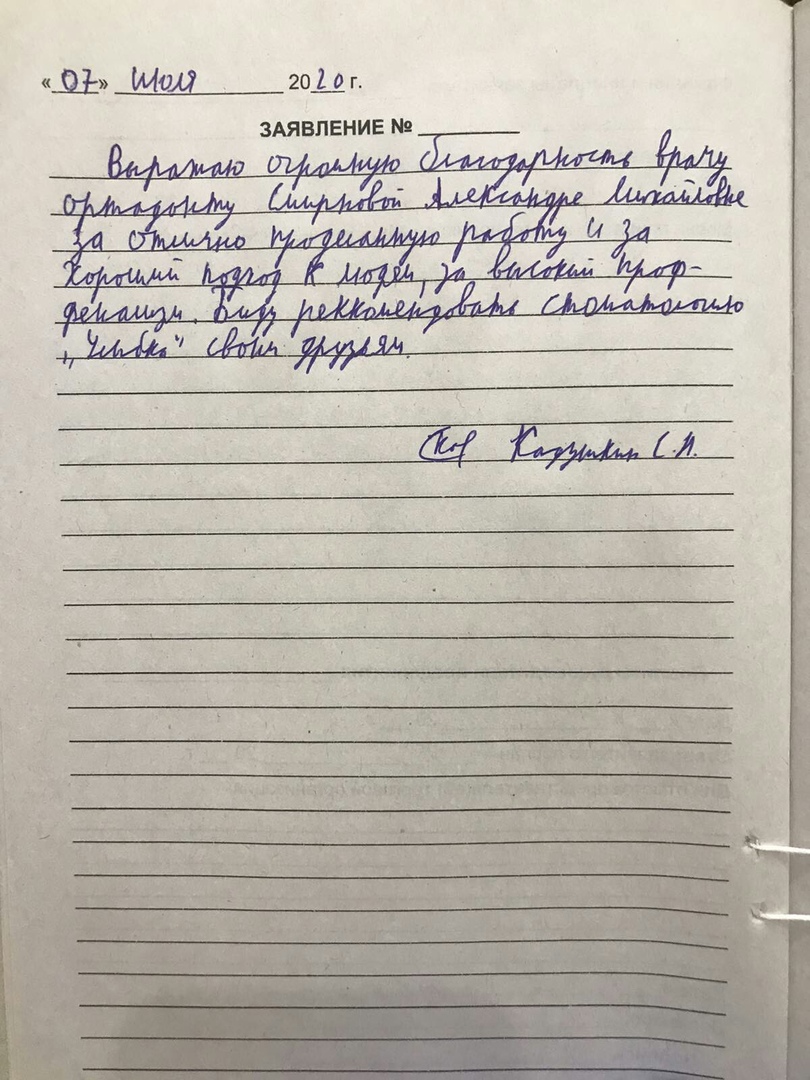 «07» Июля 2020 г.
ЗАЯВЛЕНИЕ №
Выражаю огромную благодарность врачу
ортадонту Смирновой Александре Михайловне
за отлично проделанную работу и за
хороший подход к людям, за высокий проф-
фенализм. Буду реккомендовать стоматологию
„Улыбка" своим друзьям.
Кадушкин С.И.